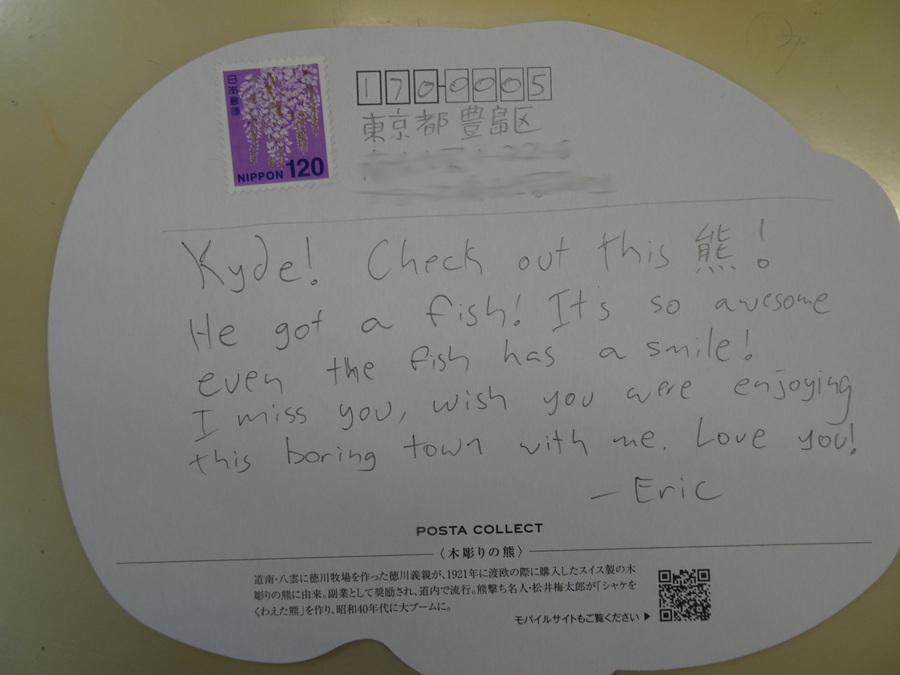 日本郵便
NIPPON 120
170-0005
東京都 豊島区
Kyde! Check out this 熊!
He got a fish! It's so awesome
even the fish has a smile!
I miss you, wish you were enjoying
this boring town with me. Love you!
—Eric
POSTA COLLECT
〈木彫りの熊〉
道南・八雲に徳川牧場を作った徳川義親が、1921年に渡欧の際に購入したスイス製の木
彫りの熊に由来。副業として奨励され、道内で流行。熊撃ち名人・松井梅太郎が「シャケを
くわえた熊」を作り、昭和40年代に大ブームに。
モバイルサイトもご覧ください ▶